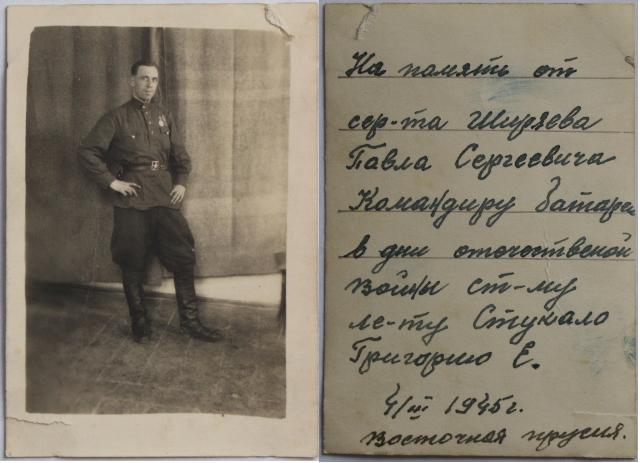 На память от
сер-та Ширяева
Павла Сергеевича
Командиру батареи
в дни отечественной
войны ст-му
ле-ту Стукало
Григорию Е.
4/III 1945г.
Восточная прусия.